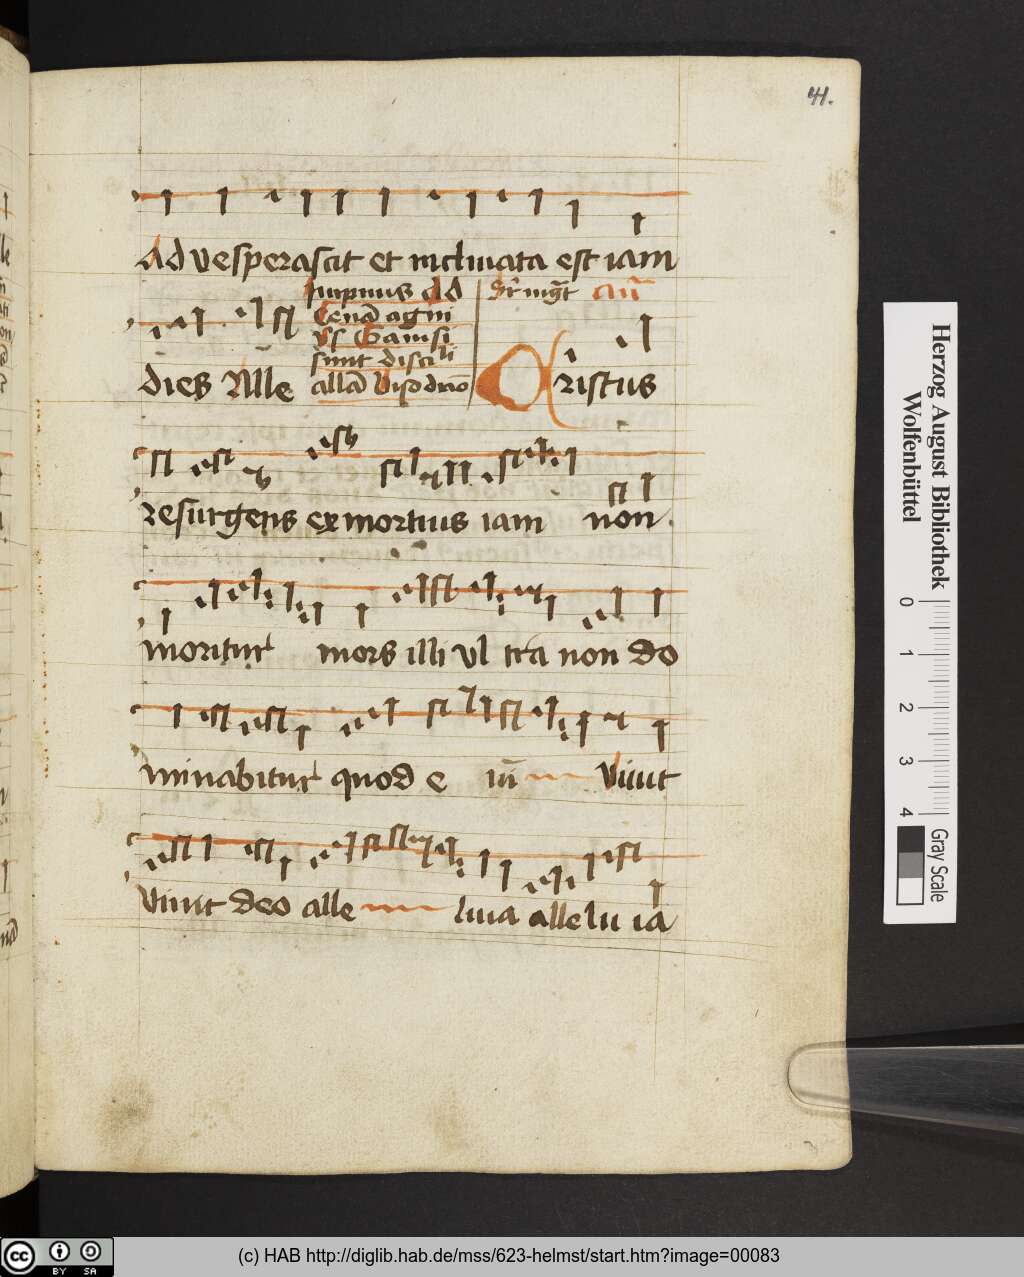 41.
Ad vesperascit et inclinata est iam
Cenā agni
sunt disci li
dies Alle
Xristus
resurgens ex mortuis iam non
moritur mors illi vl tra non do
minabitur quod e iū viuit
viuit deo alle luia alle lu ia
Herzog August Bibliothek
Wolfenbüttel
0 1 2 3 4
Gray Scale
cc BY SA
(c) HAB http://diglib.hab.de/mss/623-helmst/start.htm?image=00083